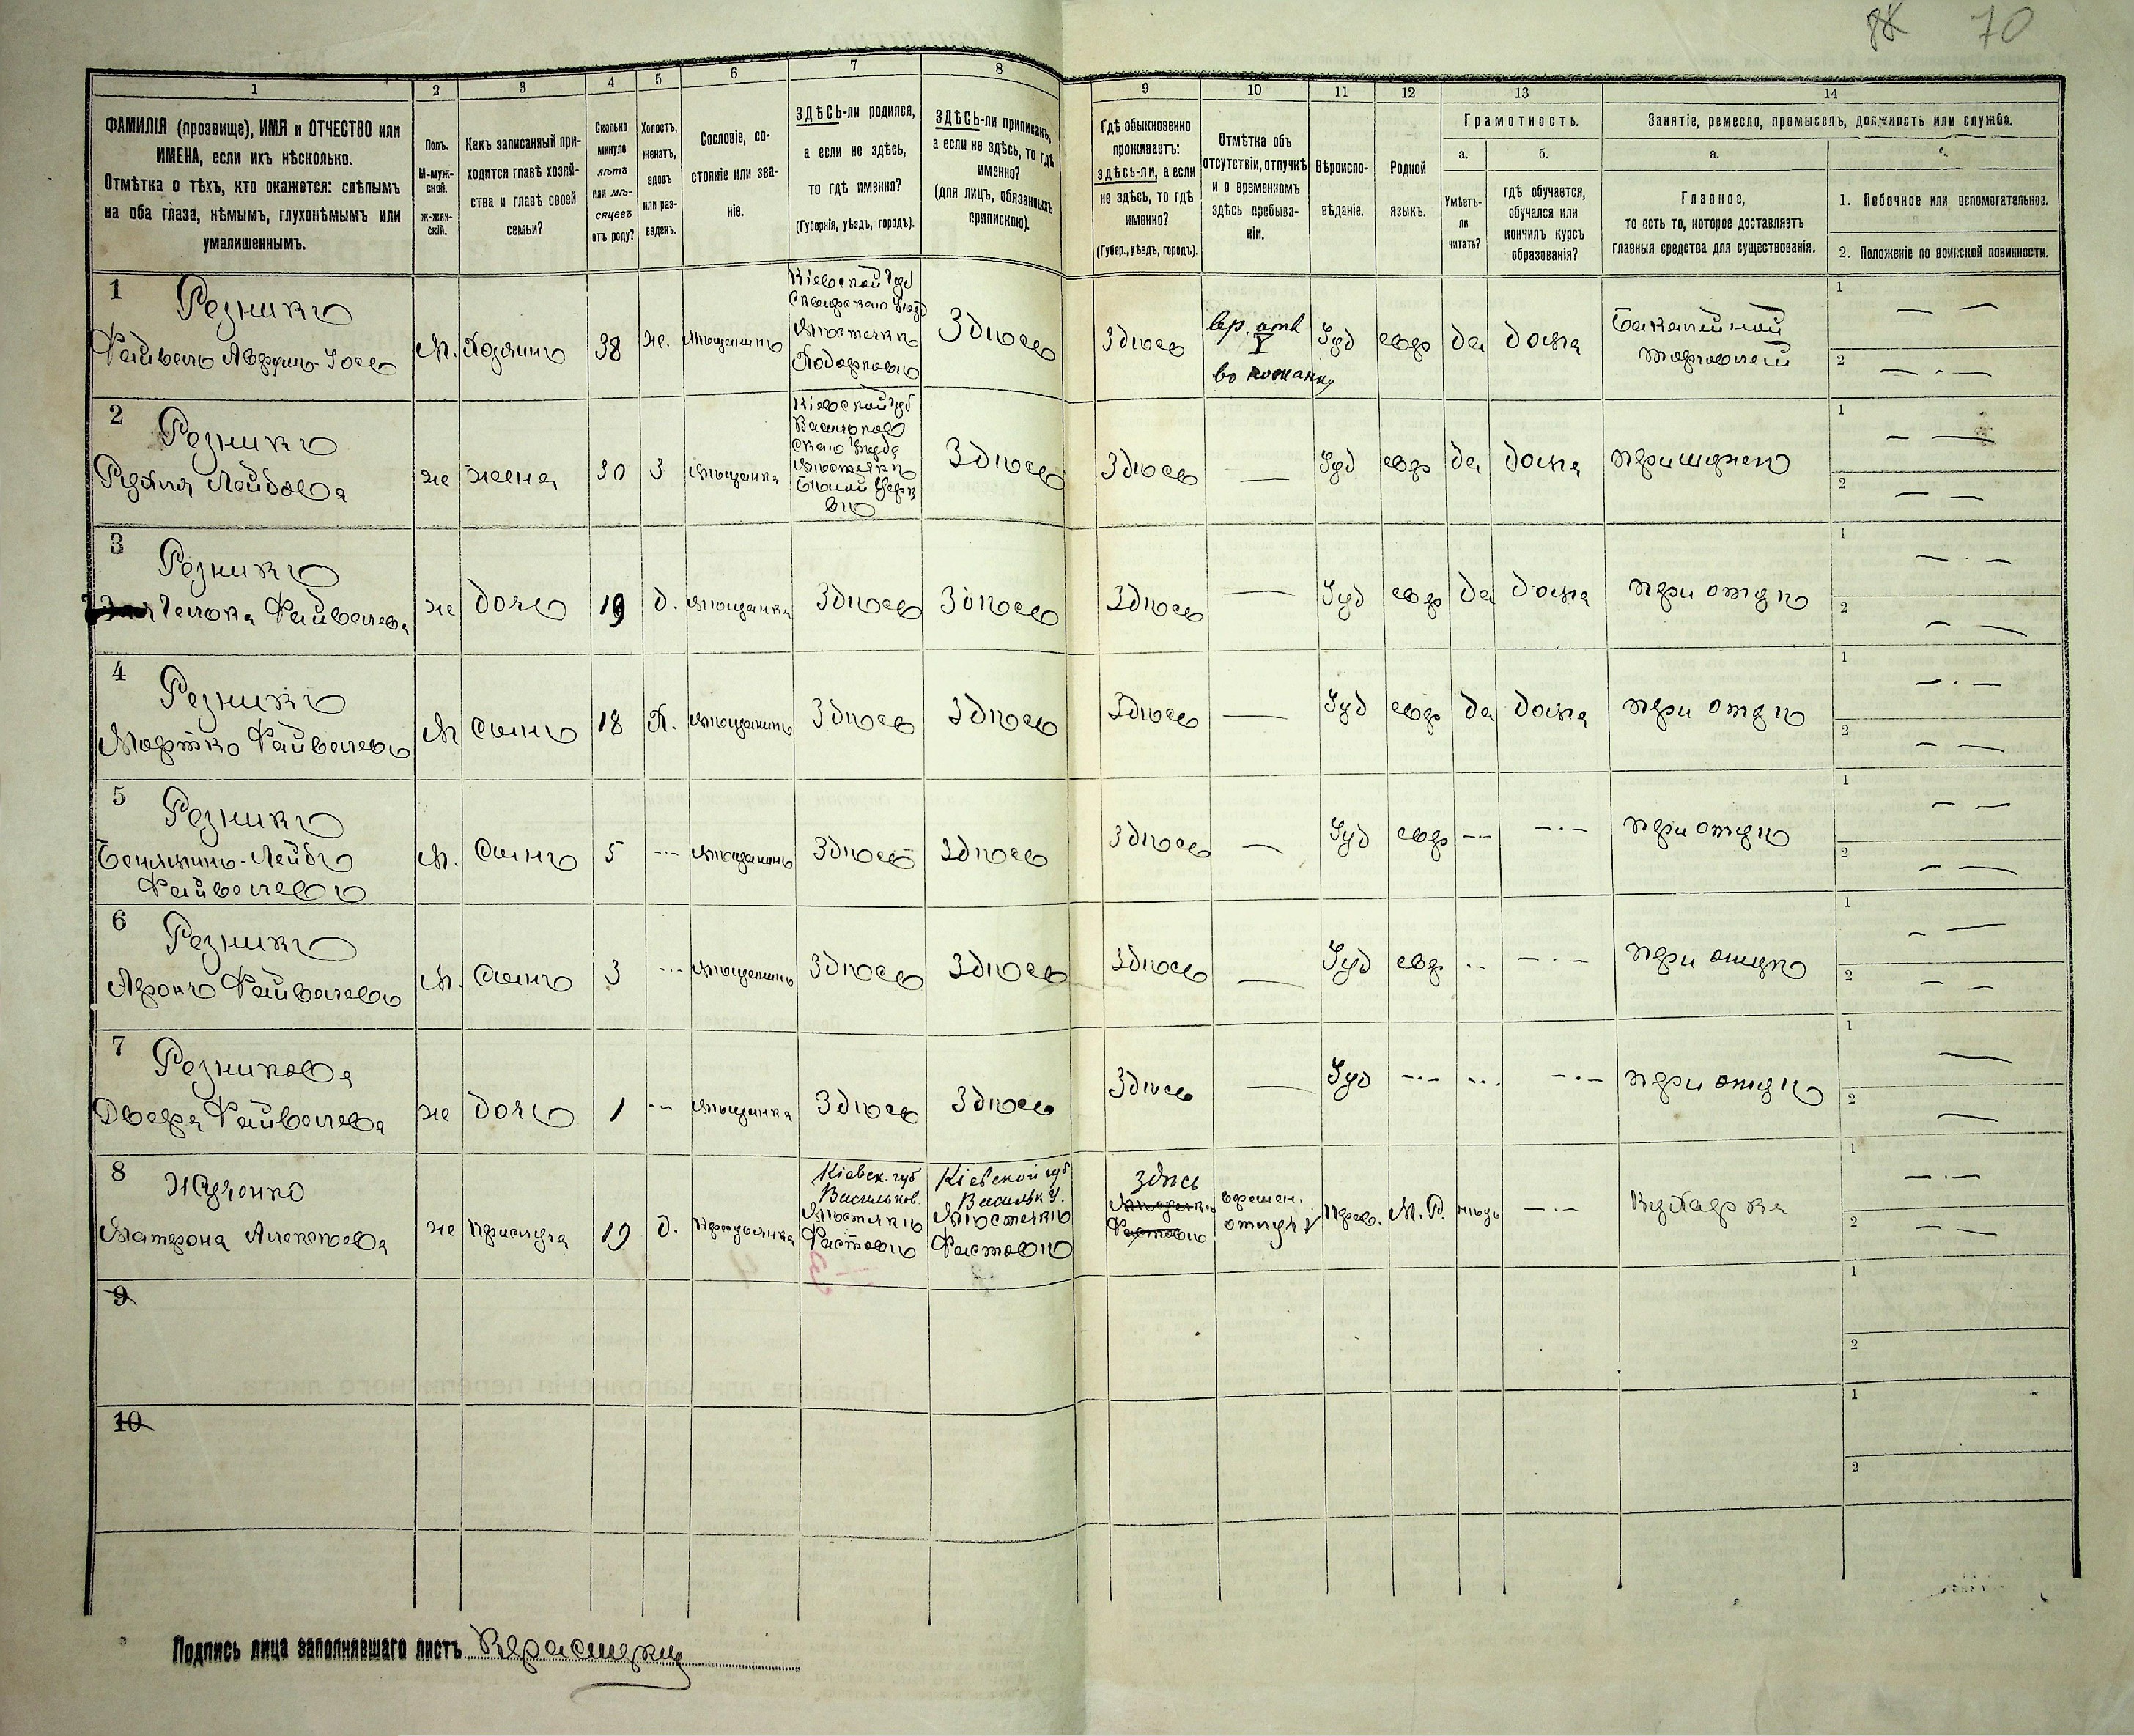 70
1 2 3 4 5 6 7 8 9 10 11 12 13 14
ФАМИЛІЯ (прозвище), ИМЯ и ОТЧЕСТВО или
ИМЕНА, если ихъ нѣсколько.
Отмѣтка о тѣхъ, кто окажется: слѣпымъ
на оба глаза, нѣмымъ, глухонѣмымъ или
умалишеннымъ.
Полъ.
М-муж-
ской.
ж-жен-
скій.
Какъ записанный при-
ходится главѣ хозяй-
ства и главѣ своей
семьи?
Сколько
минуло
лѣтъ
или мѣ-
сяцевъ
отъ роду?
Холостъ,
женатъ,
вдовъ
или раз-
веденъ.
Сословіе, со-
стояніе или зва-
ніе.
ЗДѢСЬ-ли родился,
а если не здѣсь,
то гдѣ именно?
(Губернія, уѣздъ, городъ).
ЗДѢСЬ-ли приписанъ,
а если не здѣсь, то гдѣ
именно?
(для лицъ, обязанныхъ
припискою).
Гдѣ обыкновенно
проживаетъ:
здѣсь-ли, а если
не здѣсь, то гдѣ
именно?
(Губер., уѣздъ, городъ).
Отмѣтка объ
отсутствіи, отлучкѣ
и о временномъ
здѣсь пребыва-
ніи.
Вѣроиспо-
вѣданіе.
Родной
языкъ.
Грамотность.
а.
Умѣетъ-
ли
читать?
б.
гдѣ обучается,
обучался или
кончилъ курсъ
образованія?
Занятіе, ремесло, промыселъ, должность или служба.
а.
Главное,
то есть то, которое доставляетъ
главныя средства для существованія.
1. Побочное или вспомогательное.
2. Положеніе по воинской повинности.
1 Резникъ
Файвель Аврумъ-Іосъ
М. Хозяинъ 38 же. мѣщанинъ
Кіевской Губ
Сквирскаго Уезд
Мѣстечкѣ
Здѣсь Здѣсь
вр. отв
Іуд евр да дома
Бакалейной
торговлей
1 — —
2 — . —
2 Резникъ
Лейбова
же жена 30 З мѣщанка
Кіевской губ
Васильков
скаго Уезда
Мѣстечкѣ
Бѣлой Церк
вѣ
Здѣсь Здѣсь — Іуд евр да дома при мужѣ
1 — —
2 — —
3 Резникъ
Файвелева
же дочь 19 д. мѣщанка Здѣсь Здѣсь Здѣсь — Іуд евр да дома при отцѣ
1 — . —
2 — —
4 Резникъ
Мортко Файвелевъ
М сынъ 18 Х. мѣщанинъ Здѣсь Здѣсь Здѣсь — Іуд евр да дома при отцѣ
1 — . —
2 — —
5 Резникъ
Бенияминъ-Лейбъ
Файвелевъ
М. сынъ 5 -·- мѣщанинъ Здѣсь Здѣсь Здѣсь — Іуд евр -·- -·- при отцѣ
1 — —
2 — —
6 Резникъ
Аронъ Файвелевъ
М. сынъ 3 -·- мѣщанинъ Здѣсь Здѣсь Здѣсь — Іуд евр -- -·- при отцѣ
1 — —
2 — —
7 Резникова
Двейра Файвелева
же дочь 1 -- мѣщанка Здѣсь Здѣсь Здѣсь — Іуд -·- -·- -·- при отцѣ
1 —
2 —
8
Матрона Алексѣева
же прислуга 19 д. Крестьянка
Кіевск. губ
Васильков.
Мѣстечкѣ
Фастовѣ
Кіевской губ
Васильк У.
Мѣстечкѣ
Фастовѣ
здѣсь
Мѣстечкѣ
Фастовѣ
времен.
отлуч
Прав. М.Р. нѣтъ -·- Кухарка
1 -·-
2 — —
9
1
2
10
1
2
Подпись лица заполнявшаго листъ